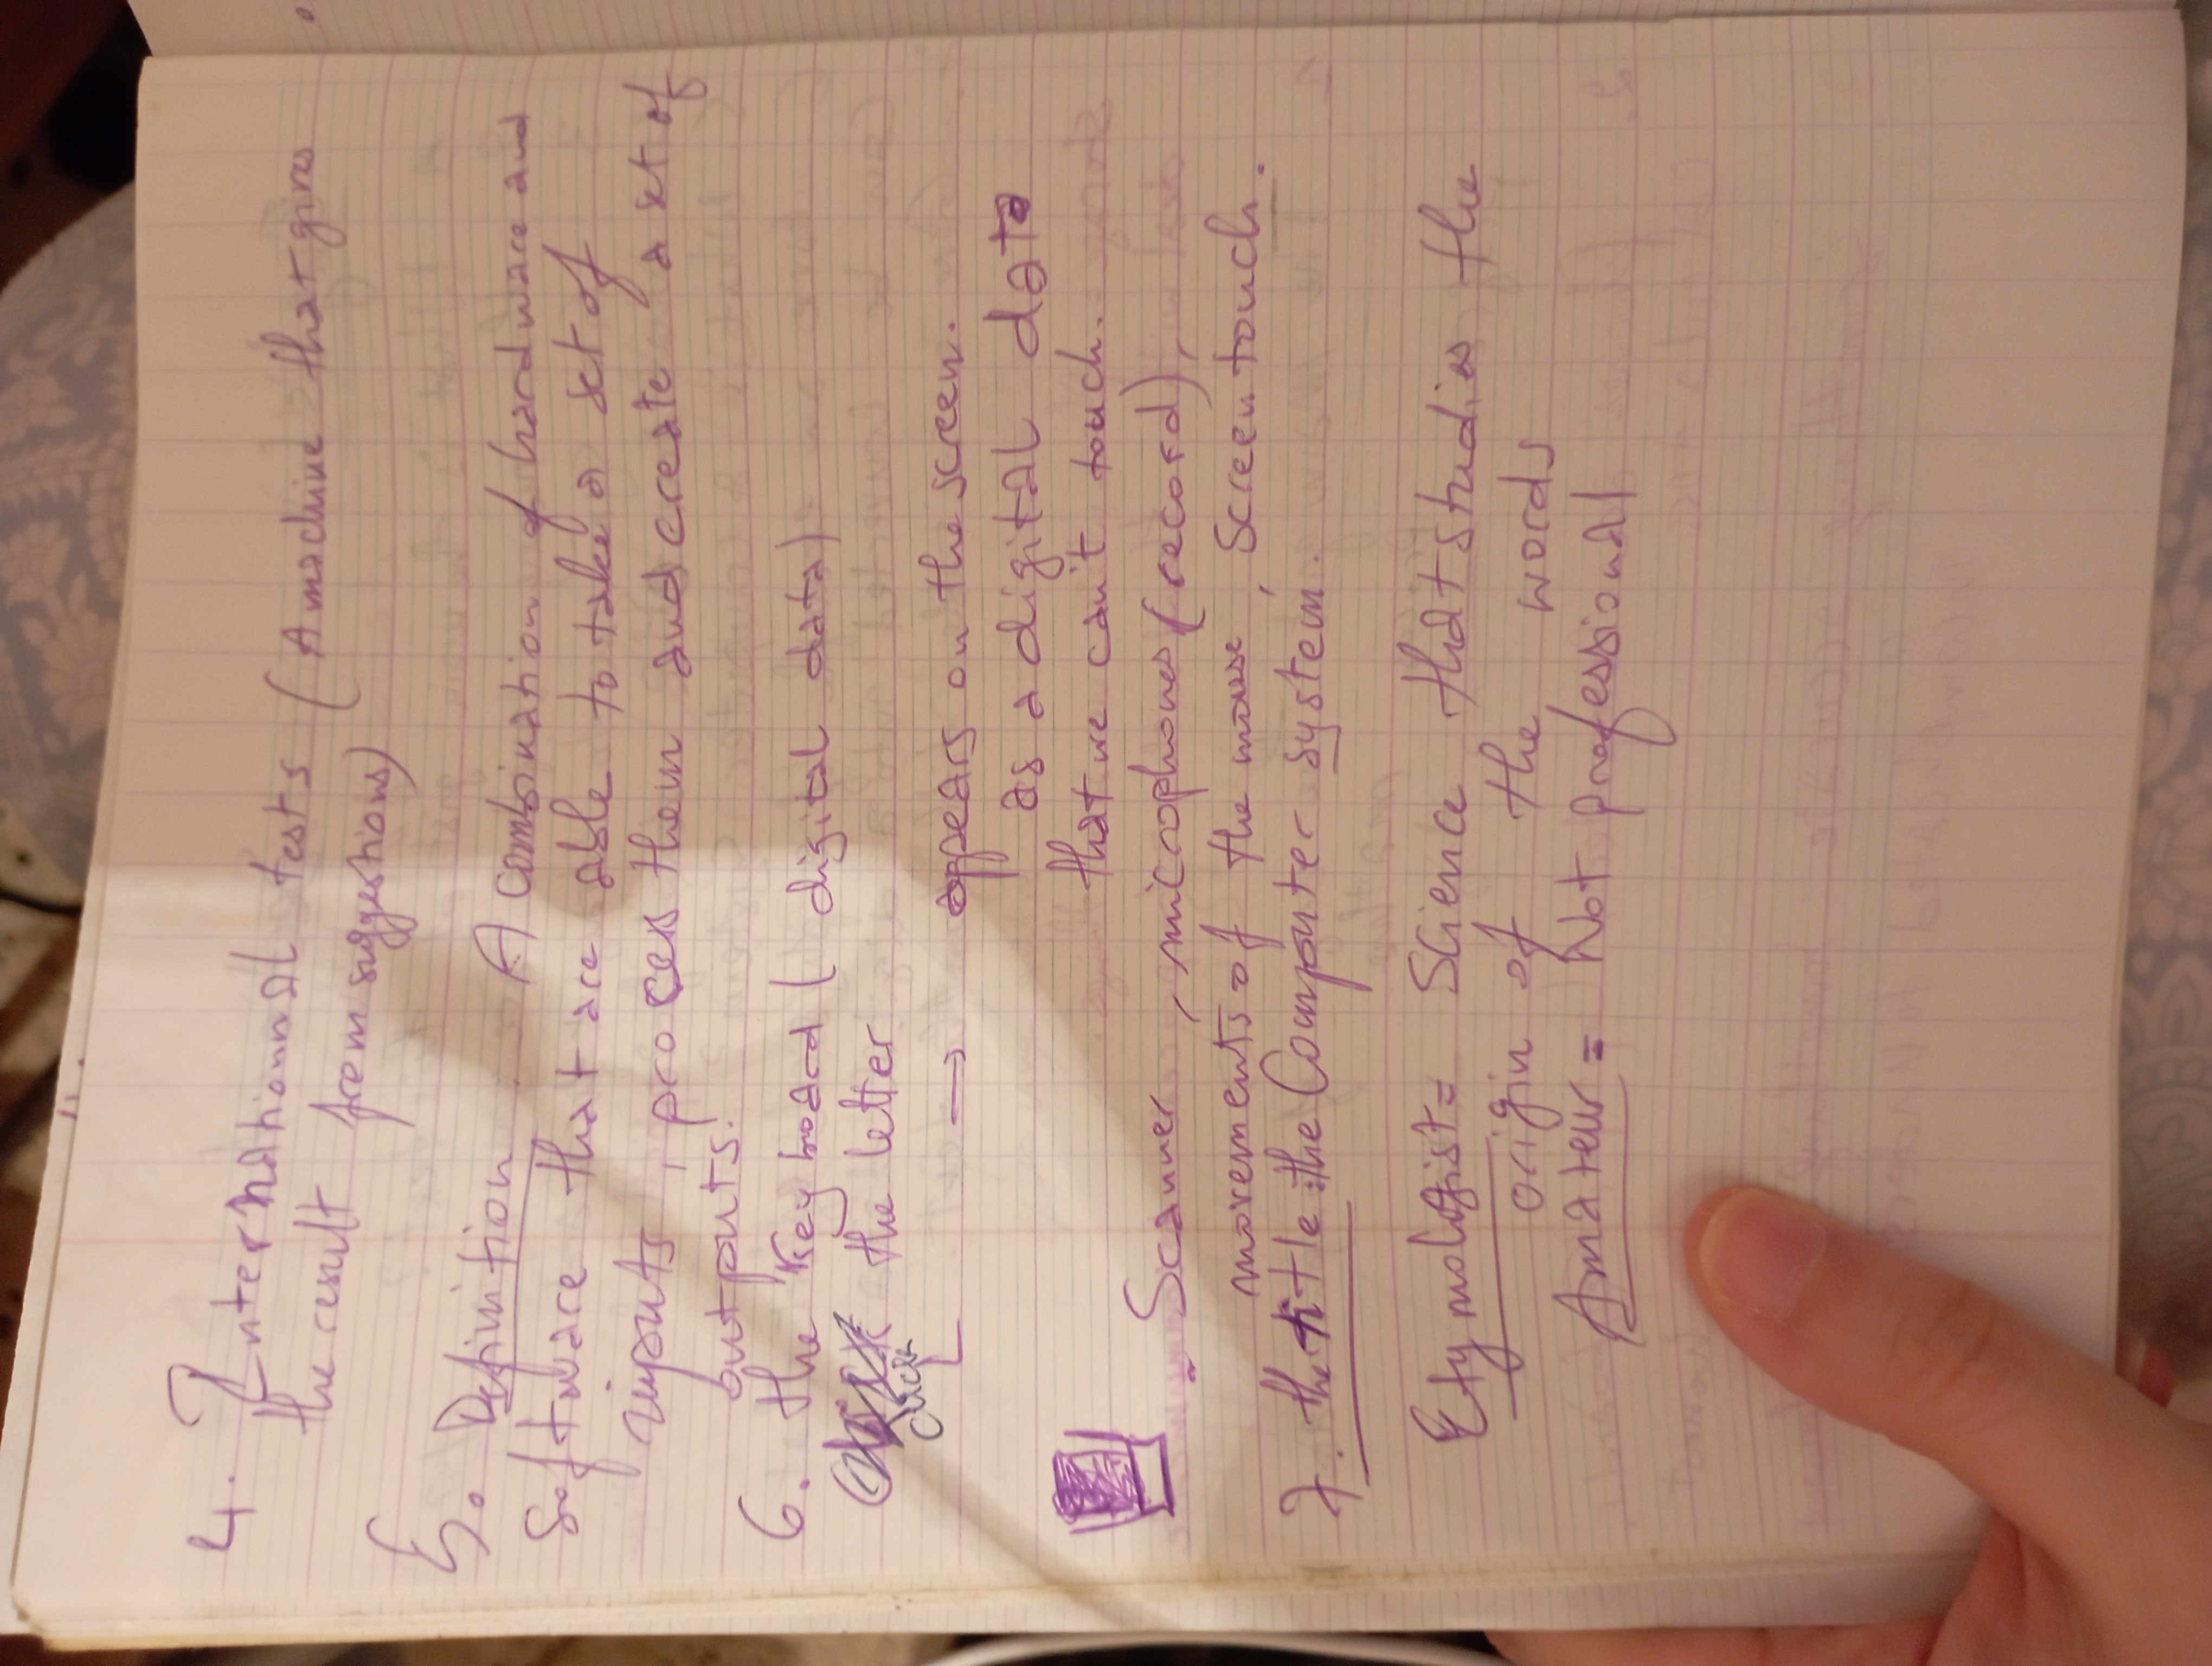 4. International tests (A machine that gives
the result from suggestions)
5. Definition . A combination of hardware and
Software that are able to take a set of
inputs, process them and create a set of
outputs.
6. the Keyboard ( digital data)
click the letter
→ appears on the screen.
as a digital data
that we can't touch.
Scanner, microphones (record),
movements of the mouse, screen touch.
7. the title: the Computer system.
Etymologist = Science that studies the
origin of the words
Amateur = Not professional